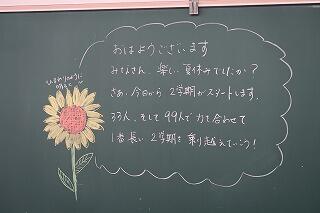 おはようございます
みなさん、楽しい夏休みでしたか?
さあ、今日から2学期がスタートします。
33人、そして99人で力を合わせて
1番長い2学期を乗り越えていこう!
ひまわりのように